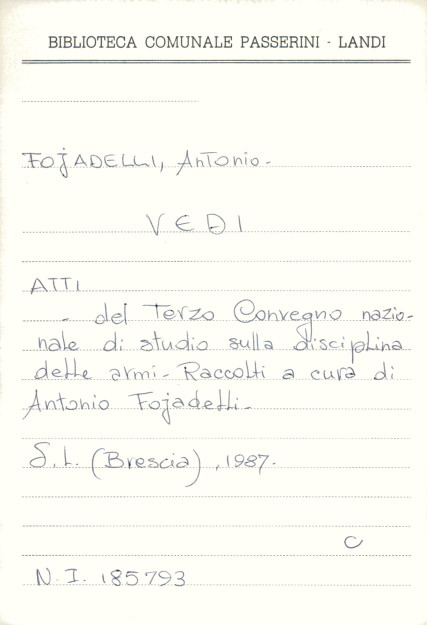 BIBLIOTECA COMUNALE PASSERINI - LANDI
FOJADELLI, Antonio-
VEDI
ATTI
- del Terzo Convegno nazio-
nale di studio sulla disciplina
delle armi- Raccolti a cura di
Antonio Fojadelli-
S.L. (Brescia), 1987.
C
N.I. 185793